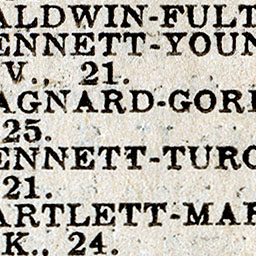 ALDWIN-FULT
ENNETT-YOUN
V., 21.
AGNARD-GOR
25.
ENNETT-TURC
21.
ARTLETT-MAR
K., 24.